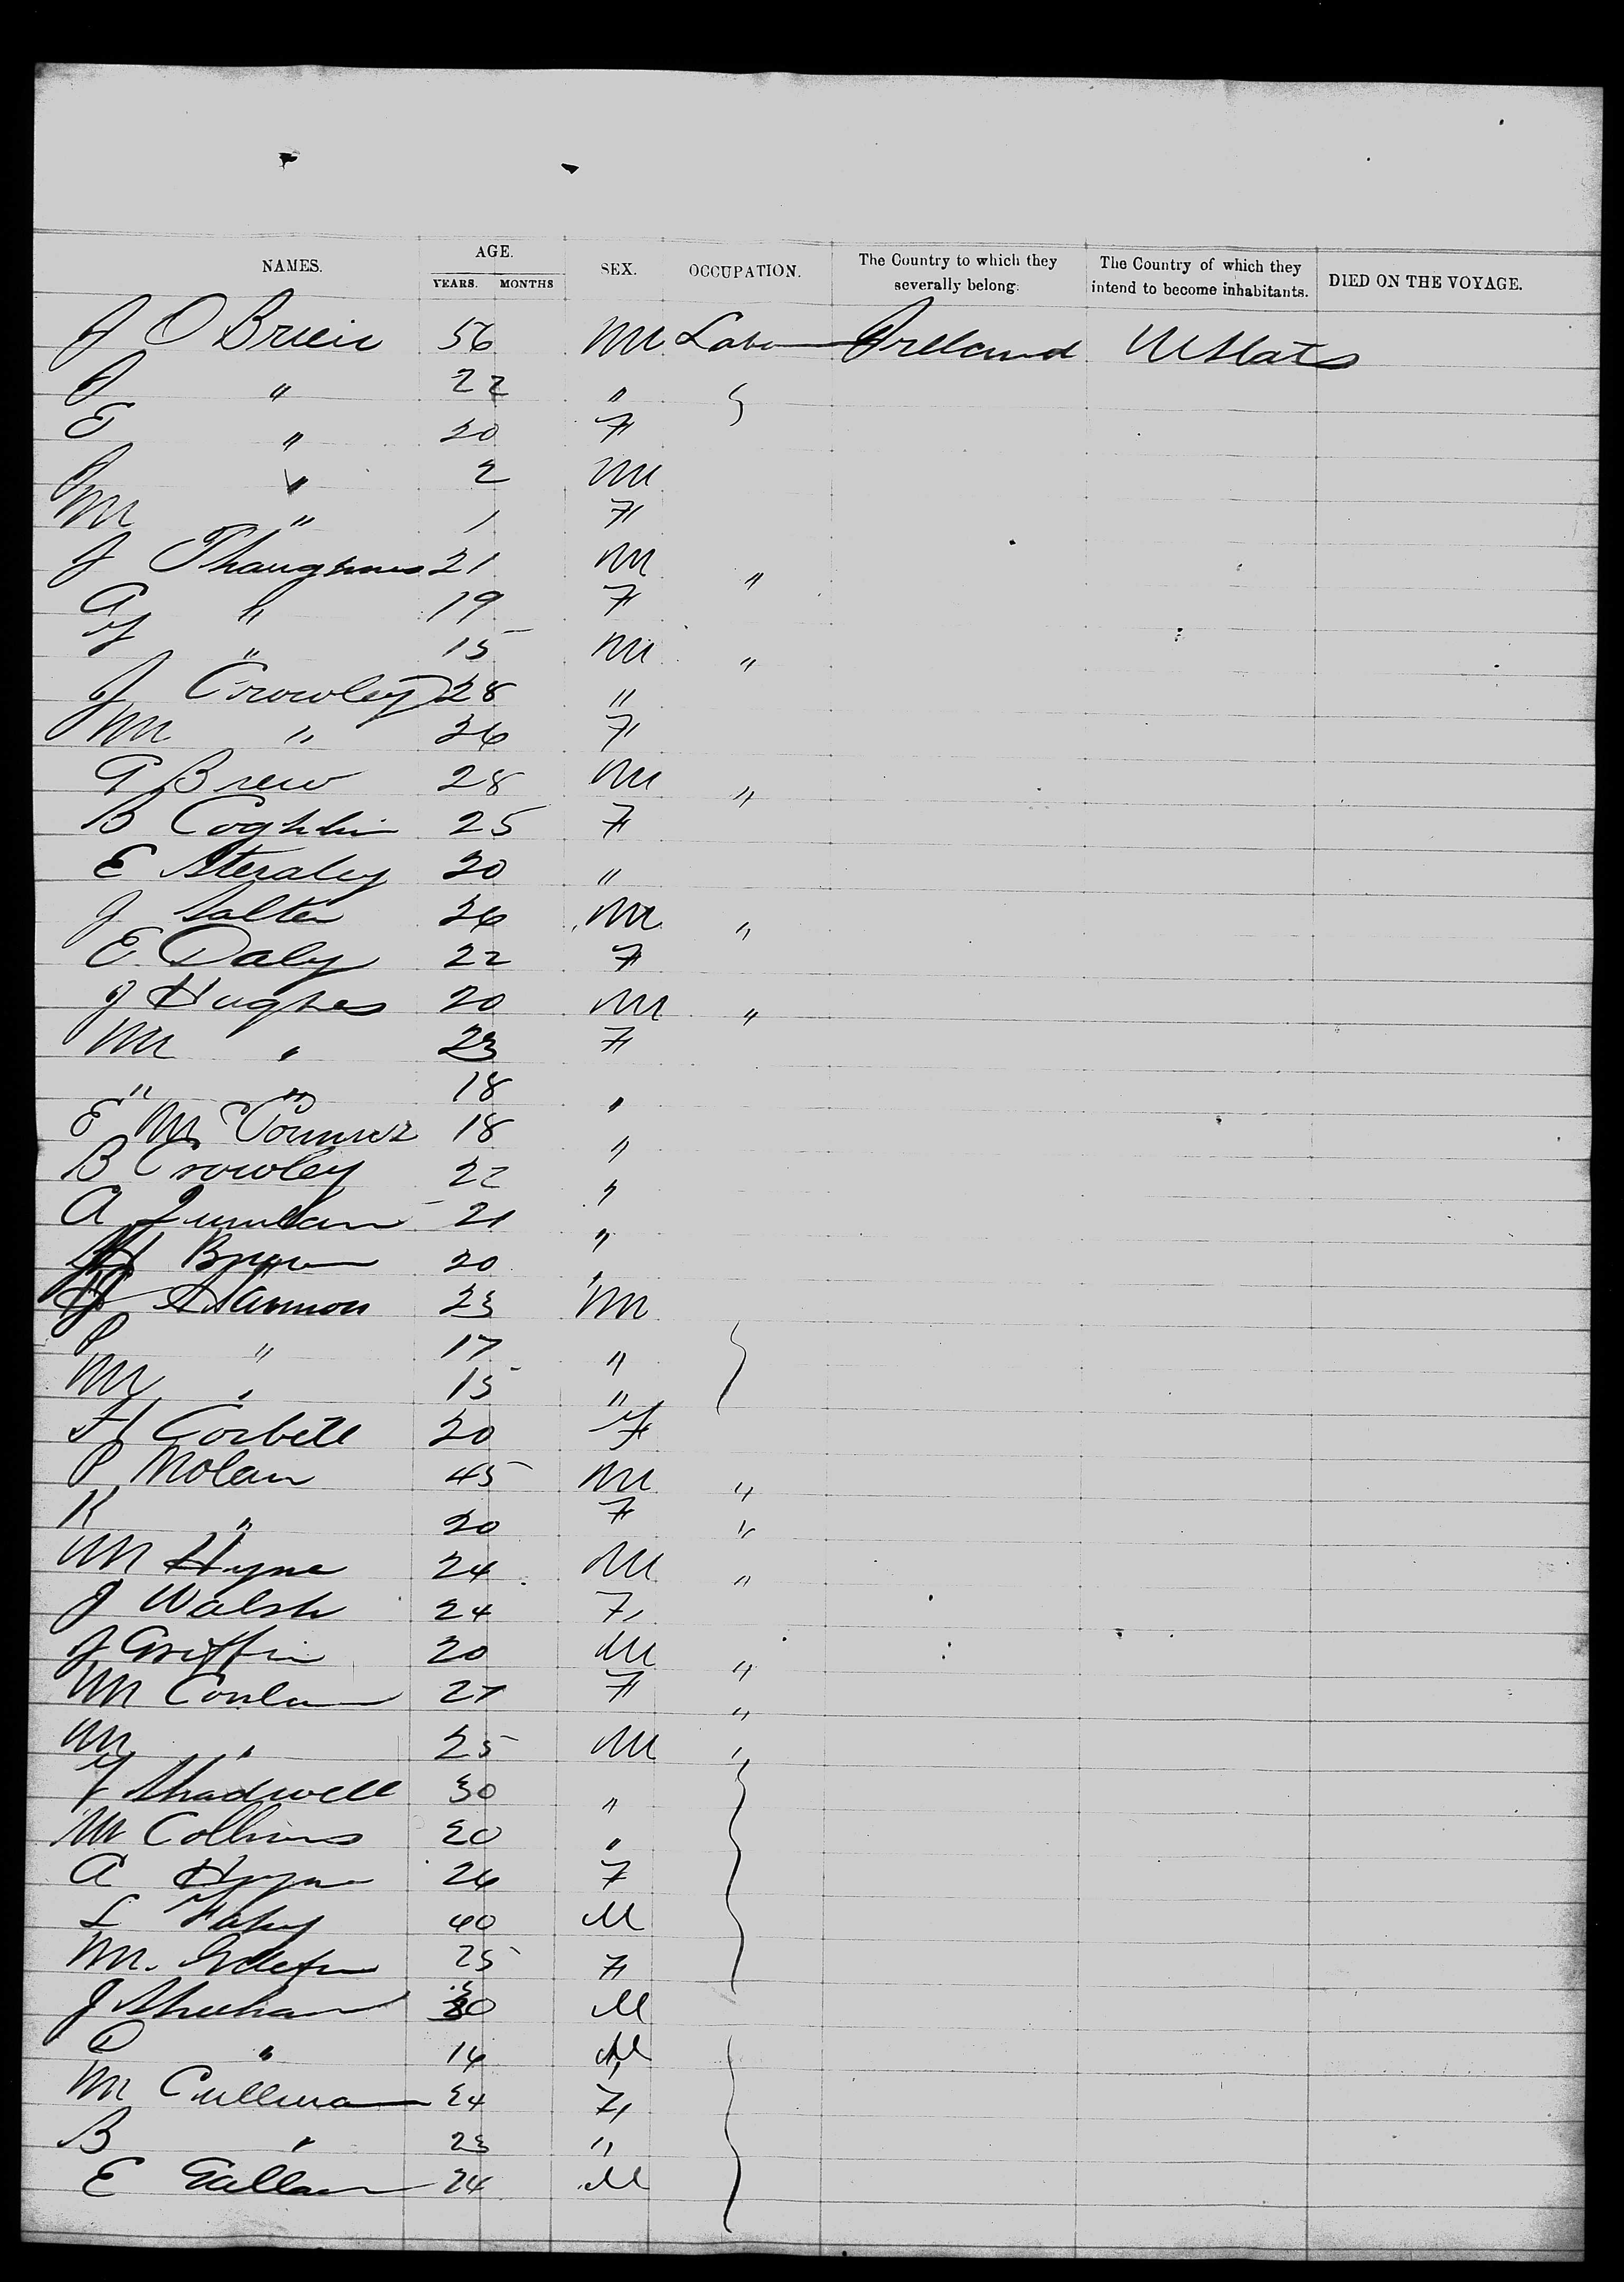 NAMES. AGE. YEARS. MONTHS SEX. OCCUPATION. The Country to which they severally belong. The Country of which they intend to become inhabitants. DIED ON THE VOYAGE.
J O Brien 56 M Labor Ireland U States
J " 22 "
E " 20 F
J " 2 M
M " 1 F
J 21 M "
A " 19 F
" 15 M "
J Crowley 28 "
M " 26 F
P Brew 28 M "
B Coghlin 25 F
E 20 "
J Salter 26 M "
E. Daly 22 F
J Hughes 20 M "
M " 23 F
" " 18 "
E Mc 18 "
B Crowley 22 "
A Quinlan 21 "
20 "
Hannon 23 M
P " 17 "
M " 15 "
H Corbett 20 F
P Nolan 45 M "
K " 20 F "
M Hyne 24 M "
J Walsh 24 F
J Griffin 20 M "
M Conlan 27 F "
M " 25 M "
Shadwell 30 "
M Collins 20 "
A Hyne 26 F
L Fahy 40 M
M. 25 F
J Sheehan 30 M
D " 14 M
M Cullinan 24 F
B " 23 "
E Gallan 24 M